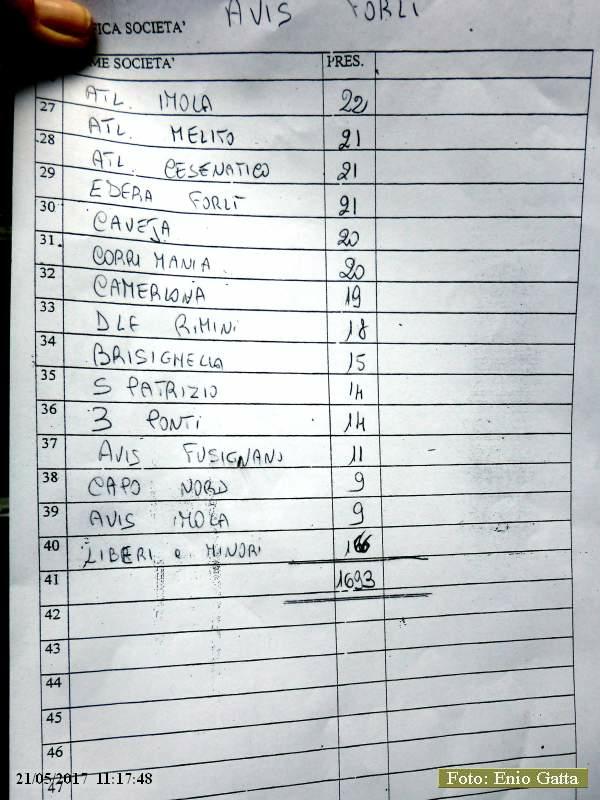 FICA SOCIETA' AVIS FORLI
ME SOCIETA' PRES.
ATL. IMOLA 22
27 ATL. MELITO 21
28 ATL. CESENATICO 21
29 EDERA FORLÌ 21
30 CAVEJA 20
31 CORRI MANIA 20
32 CAMERLONA 19
33 DLF RIMINI 18
34 BRISIGHELLA 15
35 S PATRIZIO 14
36 3 PONTI 14
37 AVIS FUSIGNANO 11
38 CAPO NORD 9
39 AVIS IMOLA 9
40 LIBERI e MINORI 166
41 1693
42
43
44
45
46
47
21/05/2017 11:17:48
Foto: Enio Gatta